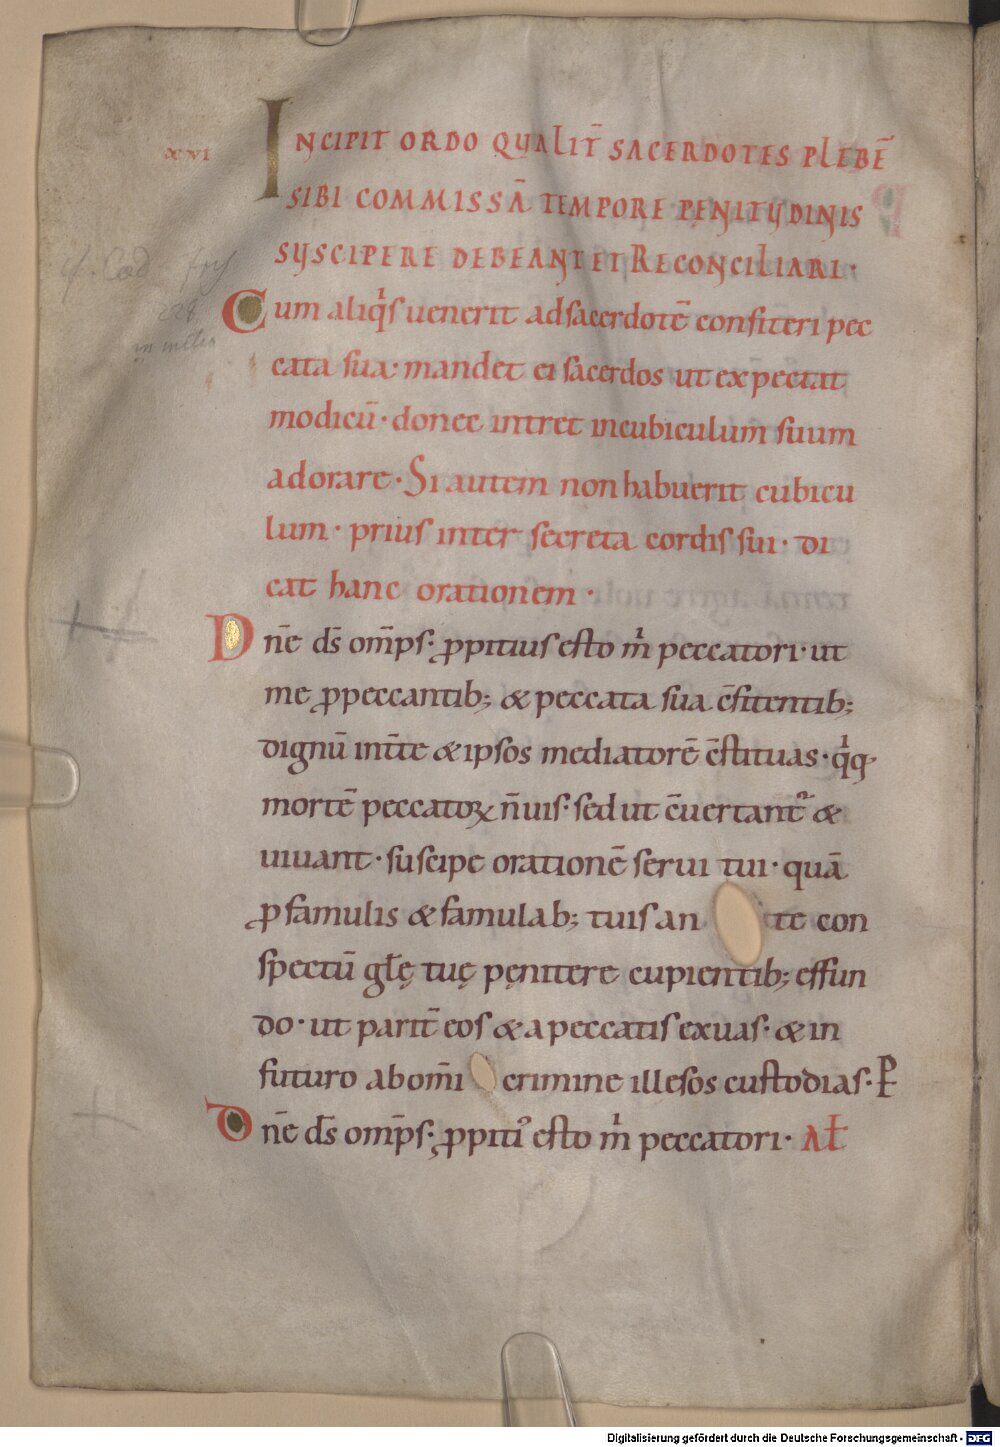 INCIPIT ORDO QUALIT̄ SACERDOTES PLEBĒ
SIBI COMMISSĀ TEMPORE PENITUDINIS
SUSCIPERE DEBEANT ET RECONCILIARI·
Cum aliqͥs uenerit ad sacerdotē confiteri pec
cata sua· mandet ei sacerdos ut expectat
modicū· donec intret in cubiculum suum
adorare· Si autem non habuerit cubicu
lum· prius inter secreta cordis sui· di
cat hanc orationem·
Dn̄e d̄s om̄ps· ꝓpitius esto mͥ peccatori· ut
me ꝓ peccantib; & peccata sua c̄fitentib;
dignū int̄ te & ipsos mediatorē c̄stituas· qͥ q·
mortē peccatoꝝ n̄ uis· sed ut c̄uertant᷑ &
uiuant· suscipe orationē serui tui· quā
ꝓ famulis & famulab; tuis an te con
spectū gl̄ę tuę pęnitere cupientib; effun
do· ut parit̄ eos & a peccatis exuas· & in
futuro ab om̄i crimine illesos custodias· P
Dn̄e d̄s om̄ps· ꝓpitiꝰ esto mͥ peccatori· Al̄
xvi
cf. Cod
228
Digitalisierung gefördert durch die Deutsche Forschungsgemeinschaft - DFG